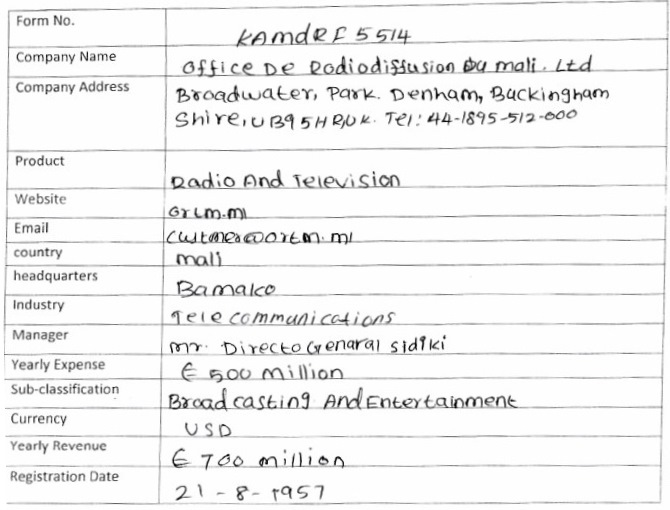 Form No. KAMdRF5514
Company Name Office De Rodiodiffusion Du mali. Ltd
Company Address Broadwater, Park. Denham, Buckingham
Shire, UB9 5HR, UK. Tel: 44-1895-512-000
Product Radio And Television
Website Ortm.ml
Email Custmer@ortm.ml
country mali
headquarters Bamako
Industry Telecommunications
Manager mr. Directo Genaral sidiki
Yearly Expense € 500 million
Sub-classification Broadcasting And Entertainment
Currency USD
Yearly Revenue € 700 million
Registration Date 21-8-1957